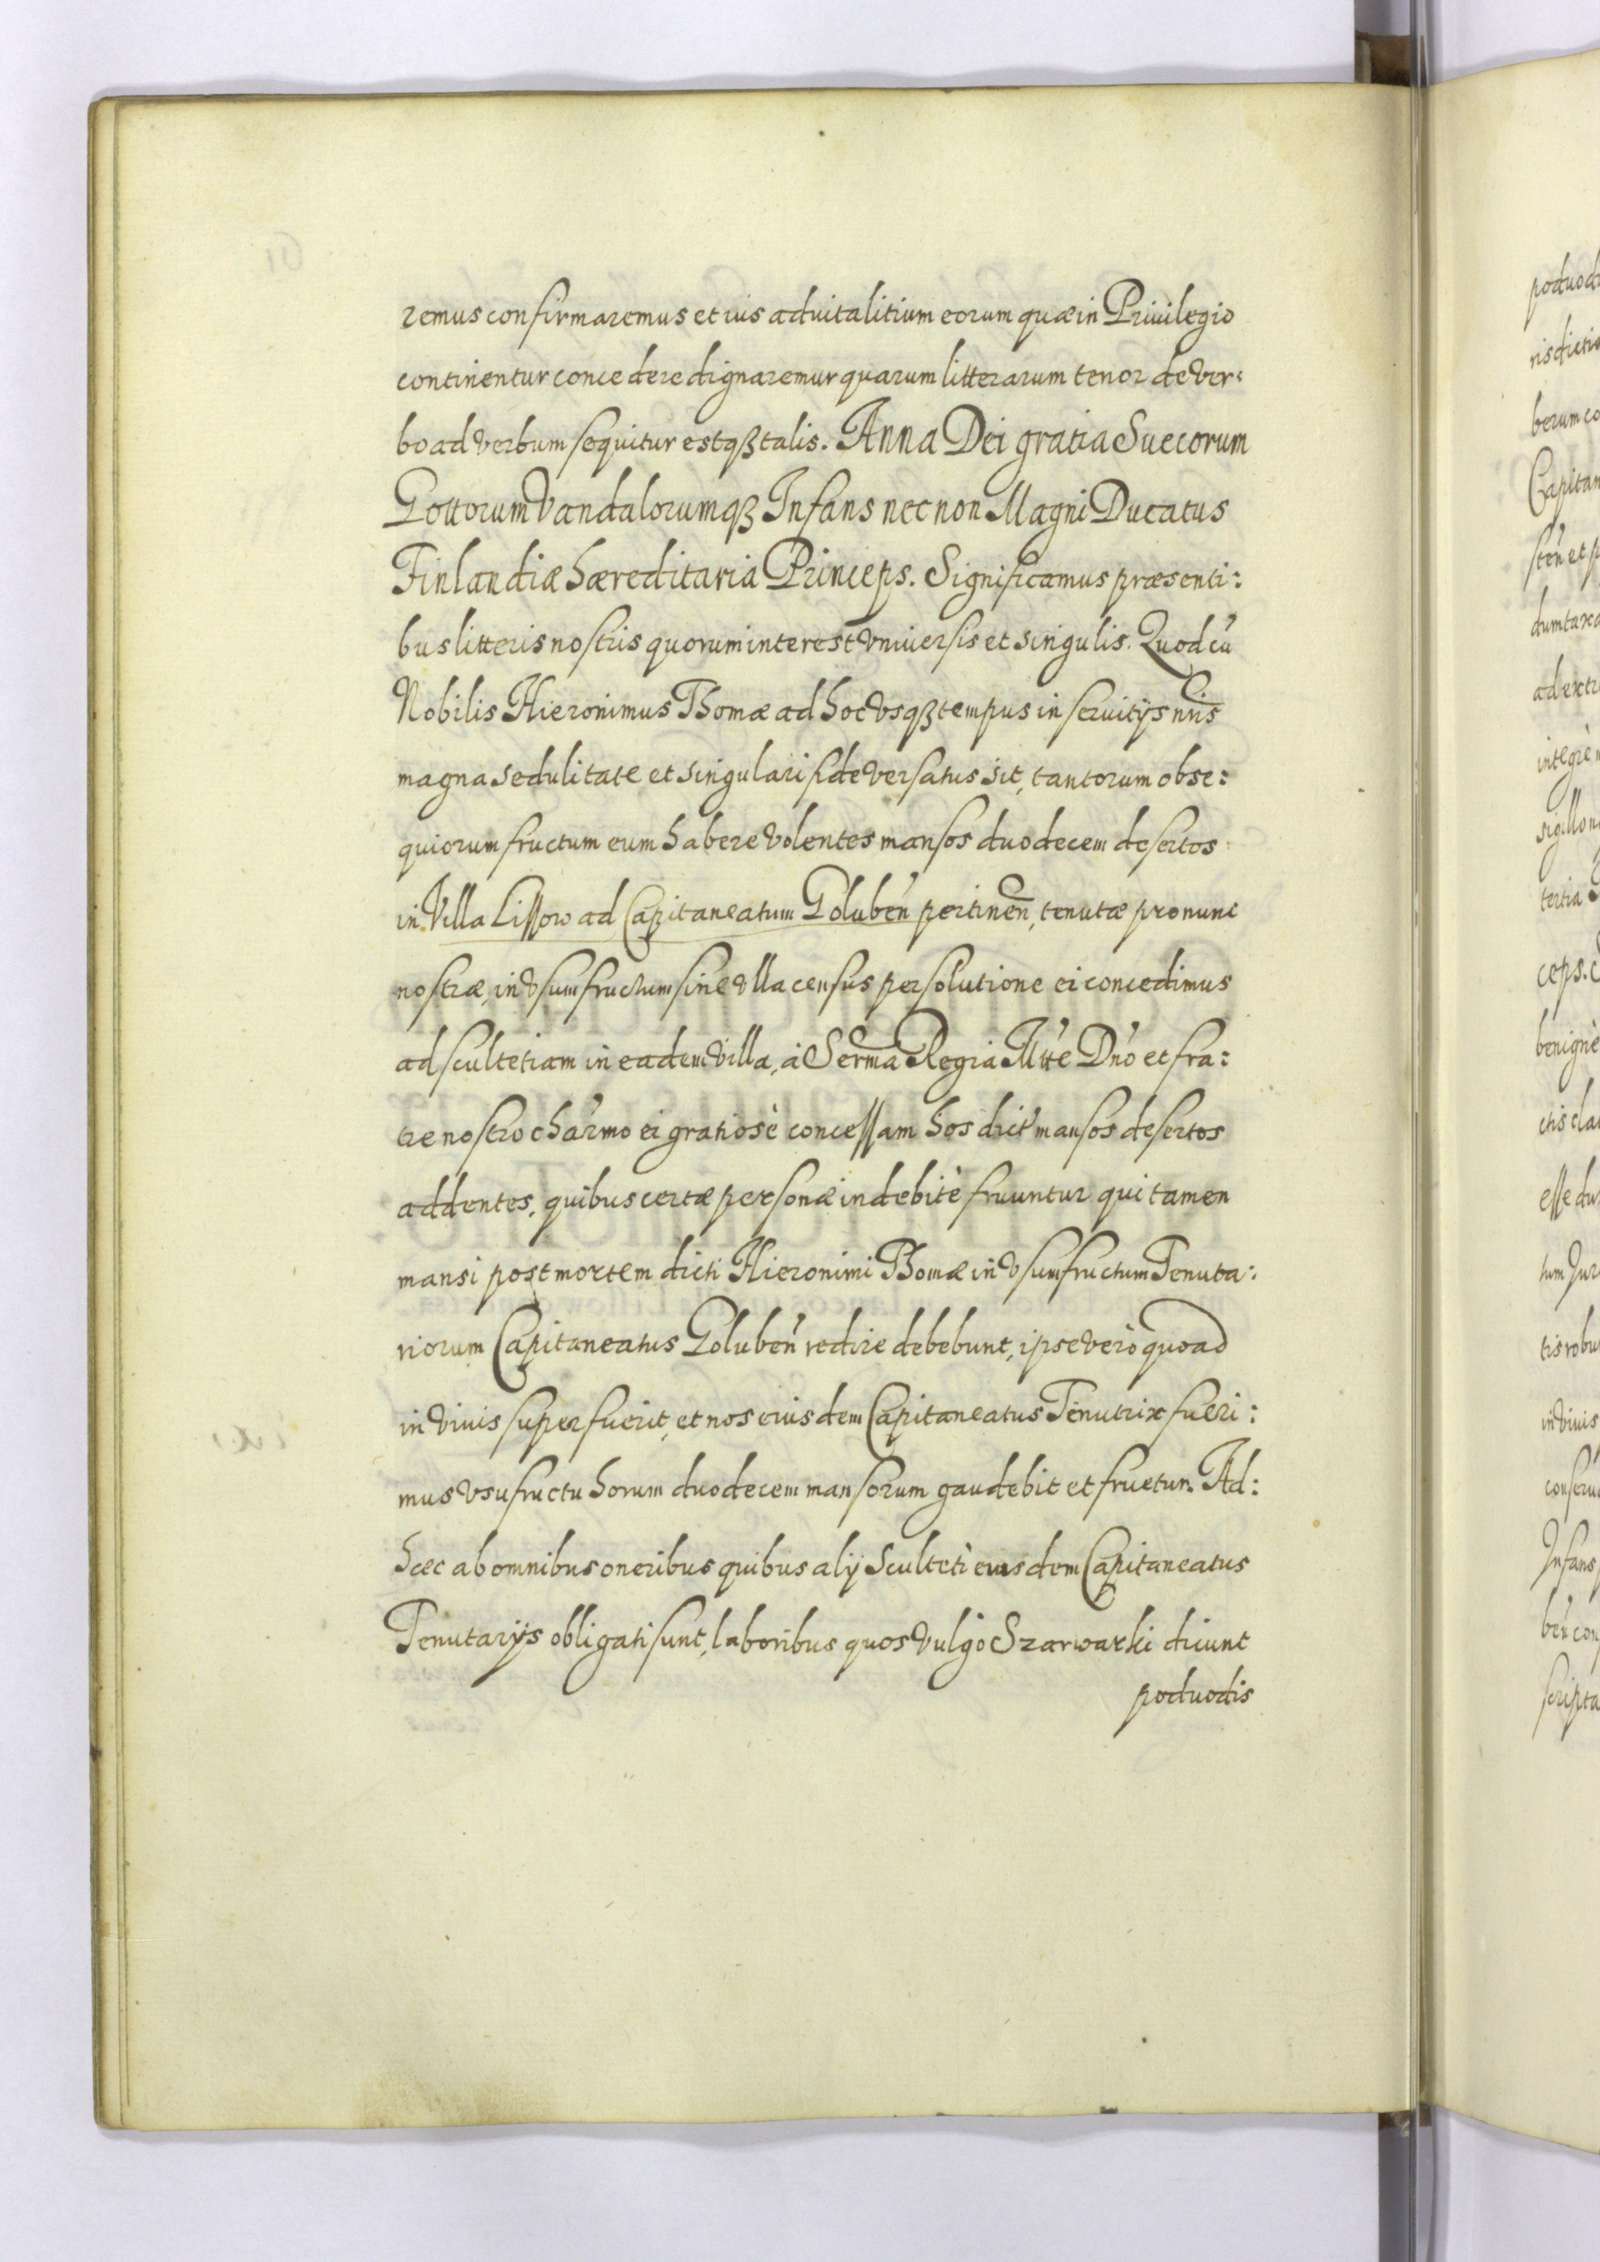 remus confirmaremus et ius aduitalitium eorum quæ in Priuilegio
continentur concedere dignaremur quarum litterarum tenor de ver:
bo ad verbum sequitur estqꝫ talis. Anna Dei gratia Suecorum
Gottorum Vandalorumqꝫ Infans nec non Magni Ducatus
Finlandiæ hæreditaria Princeps. Significamus præsenti:
bus litteris nostris quorum interest vniuersis et singulis. Quod cū
Nobilis Hieronimus Thomæ ad hoc vsqꝫ tempus in seruitÿs nr̄is
magna sedulitate et singulari fide versatus sit, tantorum obse:
quiorum fructum eum habere volentes mansos duodecem desertos
in Villa Lissow ad Capitaneatum Goluben̄ pertinen̄, tenutæ pro nunc
nostræ, in vsumfructum sine vlla census persolutione ei concedimus
ad scultetiam in eadem villa, à Serma Regia Mtte Dn̄o et fra:
tre nostro char̄mo ei gratiosè concessam hos dict' mansos desertos
addentes, quibus certæ personæ indebitè fruuntur qui tamen
mansi post mortem dicti Hieronimi Thomæ in vsumfructum Tenuta:
riorum Capitaneatus Goluben̄ redire debebunt, ipse verò quoad
in viuis superfuerit, et nos eiusdem Capitaneatus Tenutrix fueri:
mus vsufructu horum duodecem mansorum gaudebit et fruetur. Ad:
hæc ab omnibus oneribus quibus alÿ Sculteti eiusdem Capitaneatus
Tenutarÿs obligati sunt, laboribus quos vulgò Szarwarki dicunt
poduodis